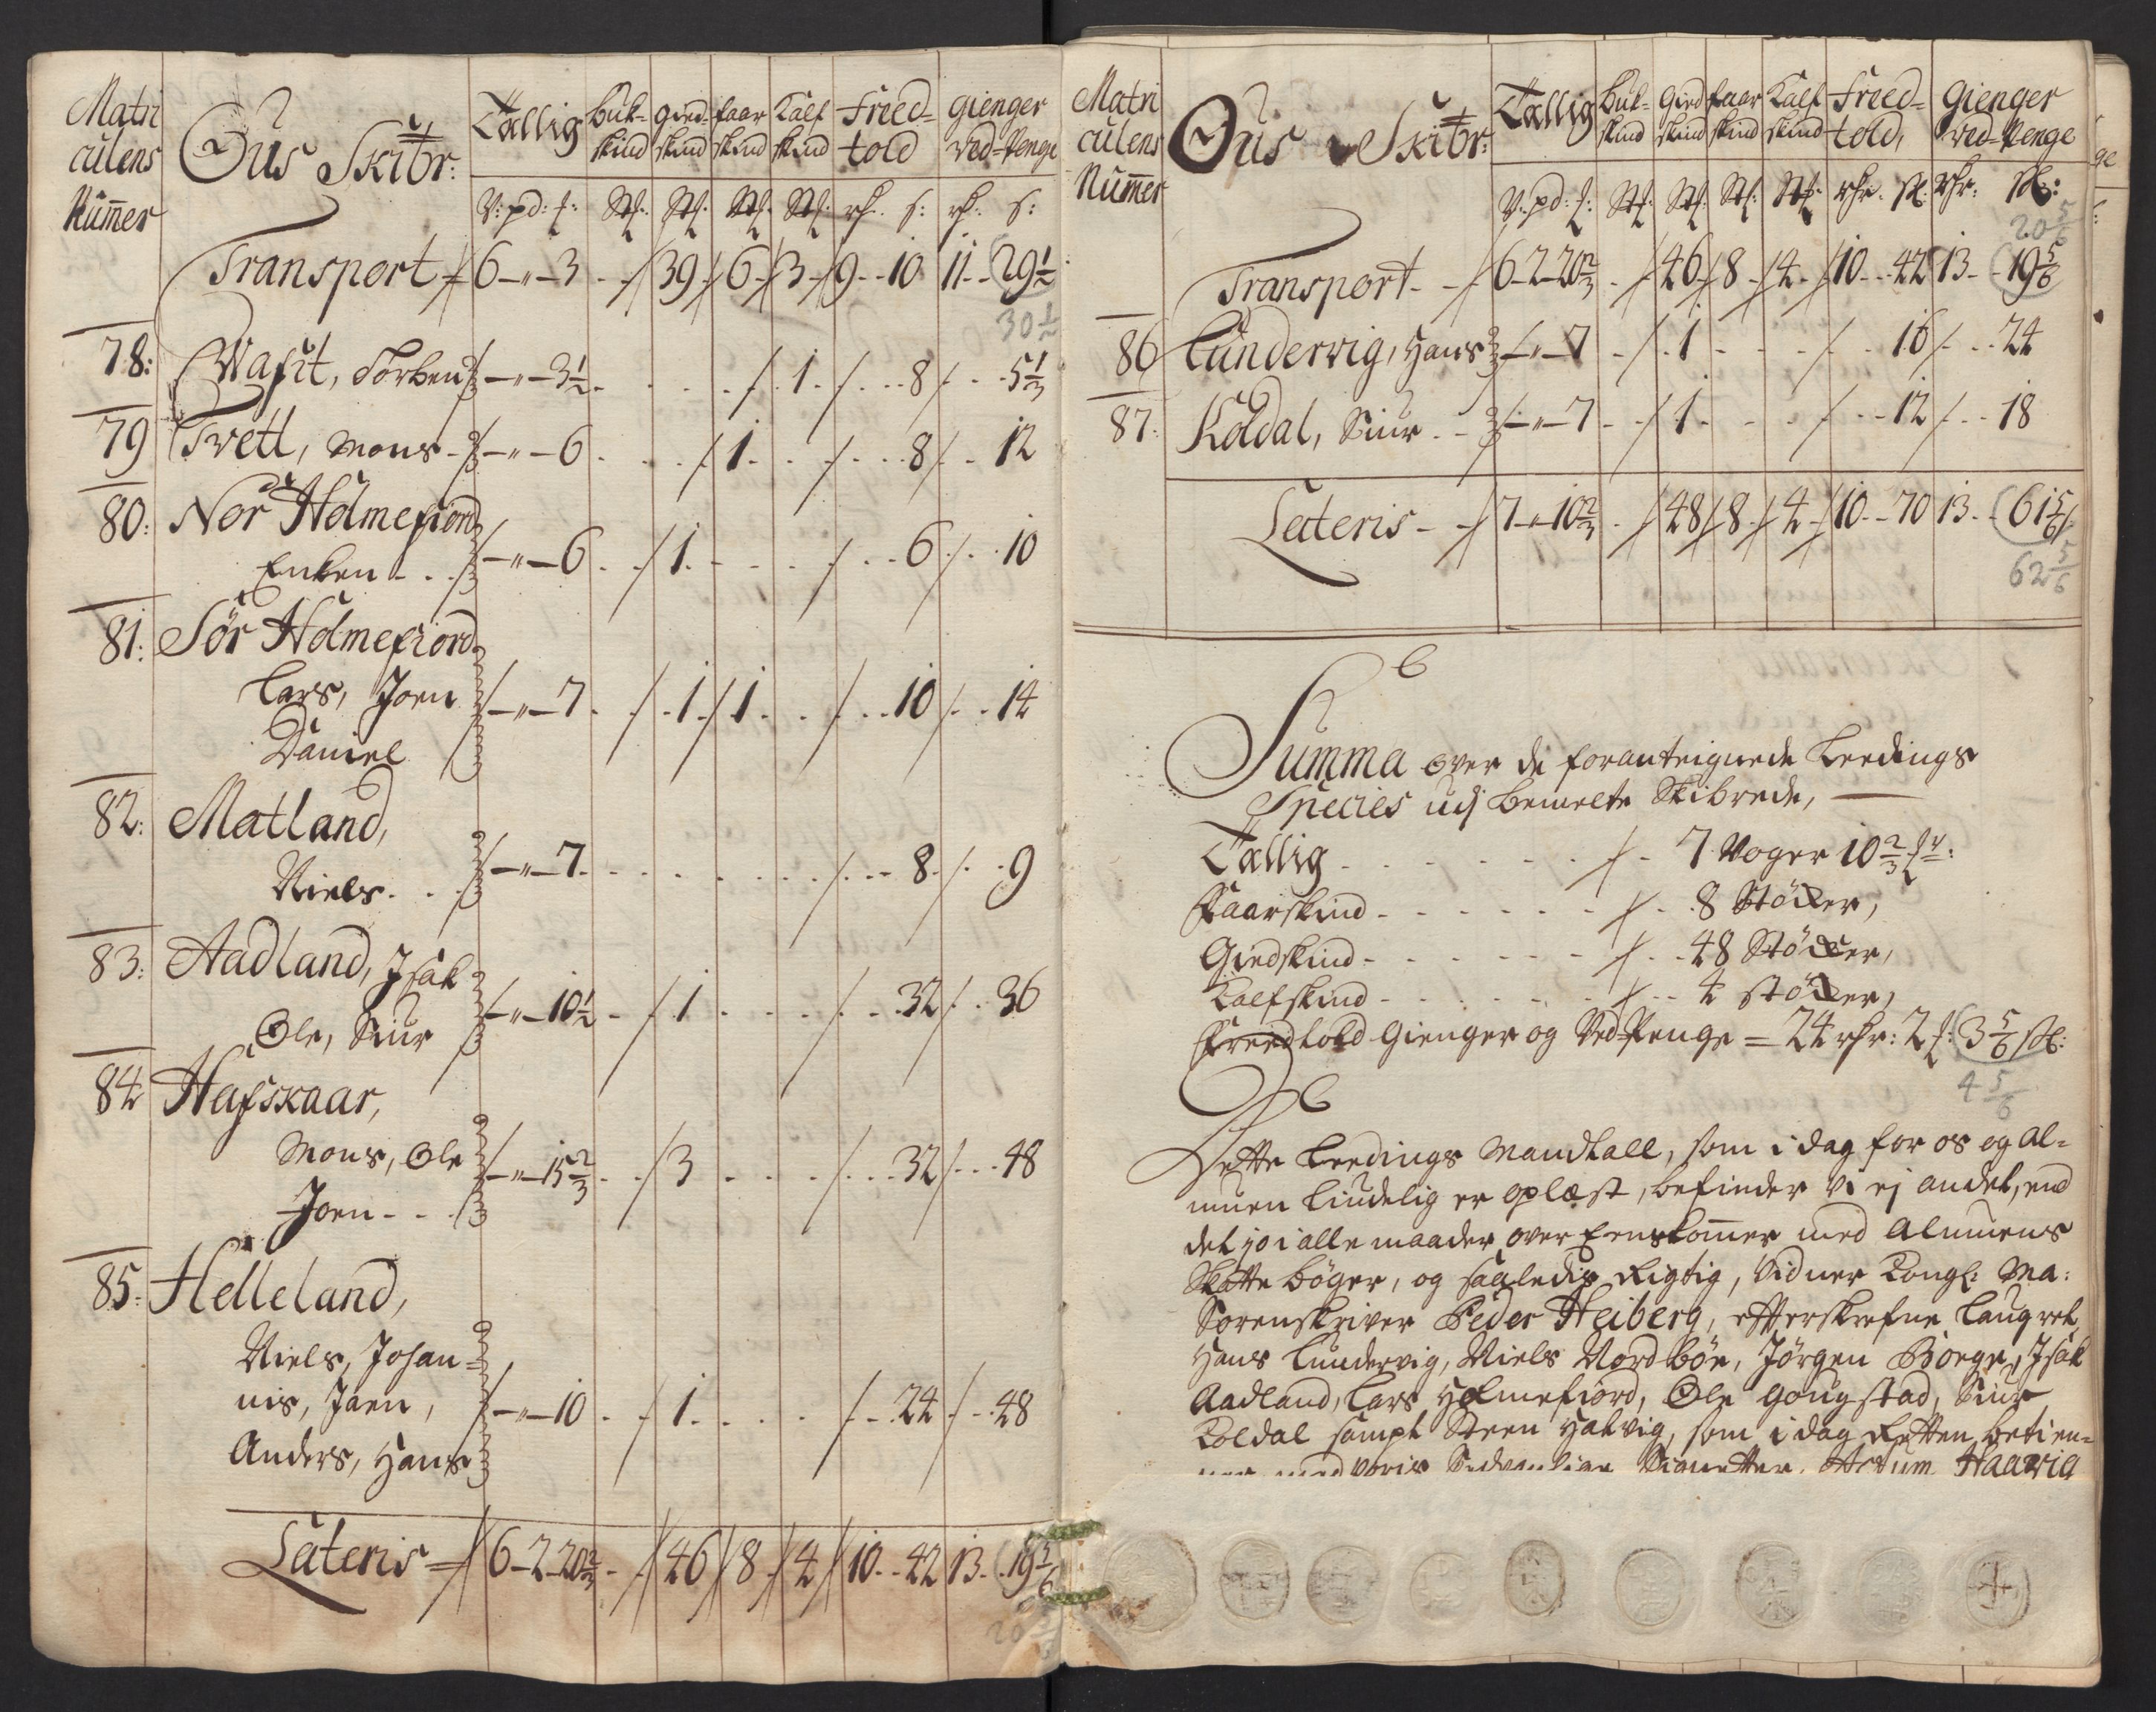 Matri
culens
Numer
Ous Skibr:
Tallig
Buk-
skind
Gied-
skind
faar
skind
Kalf
skind
Freed-
told
gienger
ved-Penge
V: pd: f: Stk: Stk: Stk: Stk: rh. s: rh. s:
Transport 6 – " – 3 39 6 3 9 . . 10 11 . . 29½
30½
78: Torben – " – 3½ . . . 1 . . . 8 . . . 5⅓
79 Tvett, Mons – " – 6 . . . 1 . . . 8 . . 12
80: Nor Holmefiord
Enken – " – 6 . . 1 . . . 6 . . 10
81: Sør Holmefiord
Lars, Joen – " – 7 . . 1 1 . . . 10 . . 14
Daniel
82: Matland,
Niels . . – " – 7 . . . 8 . . 9
83: Aadland, Isak
Ole, Siur – " – 10½ . 1 . . . 32 . . 36
84 Hafskaar,
Mons, Ole – " – 15⅔ . . 3 . . . 32 . . . 48
Joen
85: Helleland,
Niels, Johan=
nis, Joen, – " – 10 . . 1 . . . 24 . . 48
Anders, Hans
Lateris 6 – 2 – 20⅔ 46 8 4 10 . . 42 13 . . 19⅚
20⅚
Matri
culens
Numer
Ous Skibr:
Tallig
Buk-
skind
Gied
skind
faar
skind
Kalf
skind
Freed=
told,
Gienger
ved-Penge
V: pd: f: Stk: Stk: Stk: Stk: rhr. sk: rhr: sk:
20⅚
Transport 6 – 2 – 20⅔ 46 8 4 10 . . 42 13 . . 19⅚
86 Lundervig, Hans – " – 7 . . 1 . . . 16 . . 24
87: Koldal, Siur – " – 7 . . 1 . . . 12 . . 18
Lateris 7 – " – 10⅔ 48 8 4 10 . . 70 13 . . 61⅚
62⅚
Summa over de foranteignede Leedings
Species udj bemelte Skibrede,
Tallig . . . 7 Voger 10⅔
Faarskind . . . 8 Stöcker,
Giedskind . . . 48 Stöcker,
Kalfskind . . . 4 stöcker,
Freedtold Gienger og Ved-Penge = 24 rhr: 2 3⅚ sk:
4⅚
Dette Leedings Mandtall, som i dag for os og Al=
muen liudelig er oplæst, befinder vi ej andet, end
det jo i alle maader over Eenskommer med Almuens
Skatte bøger, og saaledis Rigtig, Vidner Kongl: Ma:
Sorenskriver Peder Heiberg, efterskrefne Laugret,
Hans Lundervig, Niels Nordbøe, Jörgen Borge, Isak
Aadland, Lars Holmefiord, Ole Gougstad, Siur
Koldal sampt Steen Hatvig, som i dag Retten betien=
med voris Sedvanlige Signetter. Actum Haavig